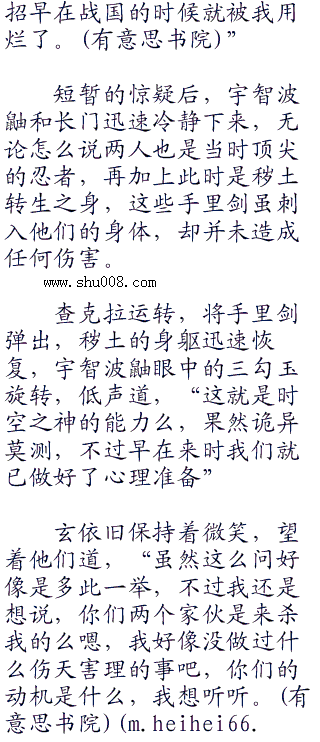 招早在战国的时候就被我用
烂了。(有意思书院)”
短暂的惊疑后，宇智波
鼬和长门迅速冷静下来，无
论怎么说两人也是当时顶尖
的忍者，再加上此时是秽土
转生之身，这些手里剑虽刺
入他们的身体，却并未造成
任何伤害。
www.shu008.com
查克拉运转，将手里剑
弹出，秽土的身躯迅速恢
复，宇智波鼬眼中的三勾玉
旋转，低声道，“这就是时
空之神的能力么，果然诡异
莫测，不过早在来时我们就
已做好了心理准备”
玄依旧保持着微笑，望
着他们道，“虽然这么问好
像是多此一举，不过我还是
想说，你们两个家伙是来杀
我的么嗯，我好像没做过什
么伤天害理的事吧，你们的
动机是什么，我想听听。(有
意思书院)(m.heihei66.